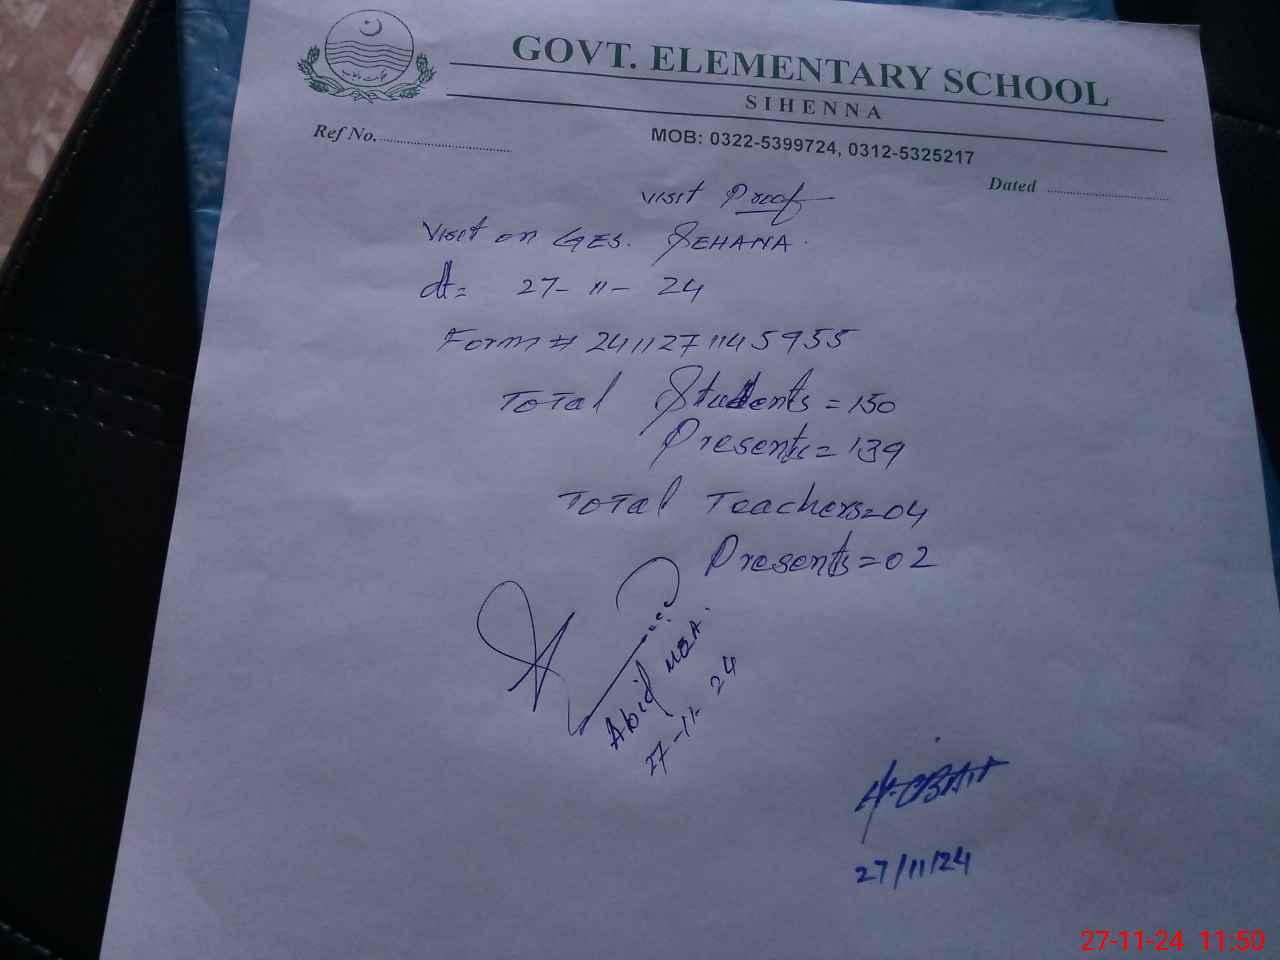 GOVT. ELEMENTARY SCHOOL
SIHENNA
Ref No.
MOB: 0322-5399724, 0312-5325217
Dated
Visit Proof
Visit on GES. SEHANA.
dt= 27-11-24
Form # 2411271145955
Total Students = 150
Presents = 139
Total Teachers = 04
Presents = 02
Abid MEA.
27-11-24
27/11/24
27-11-24 11:50